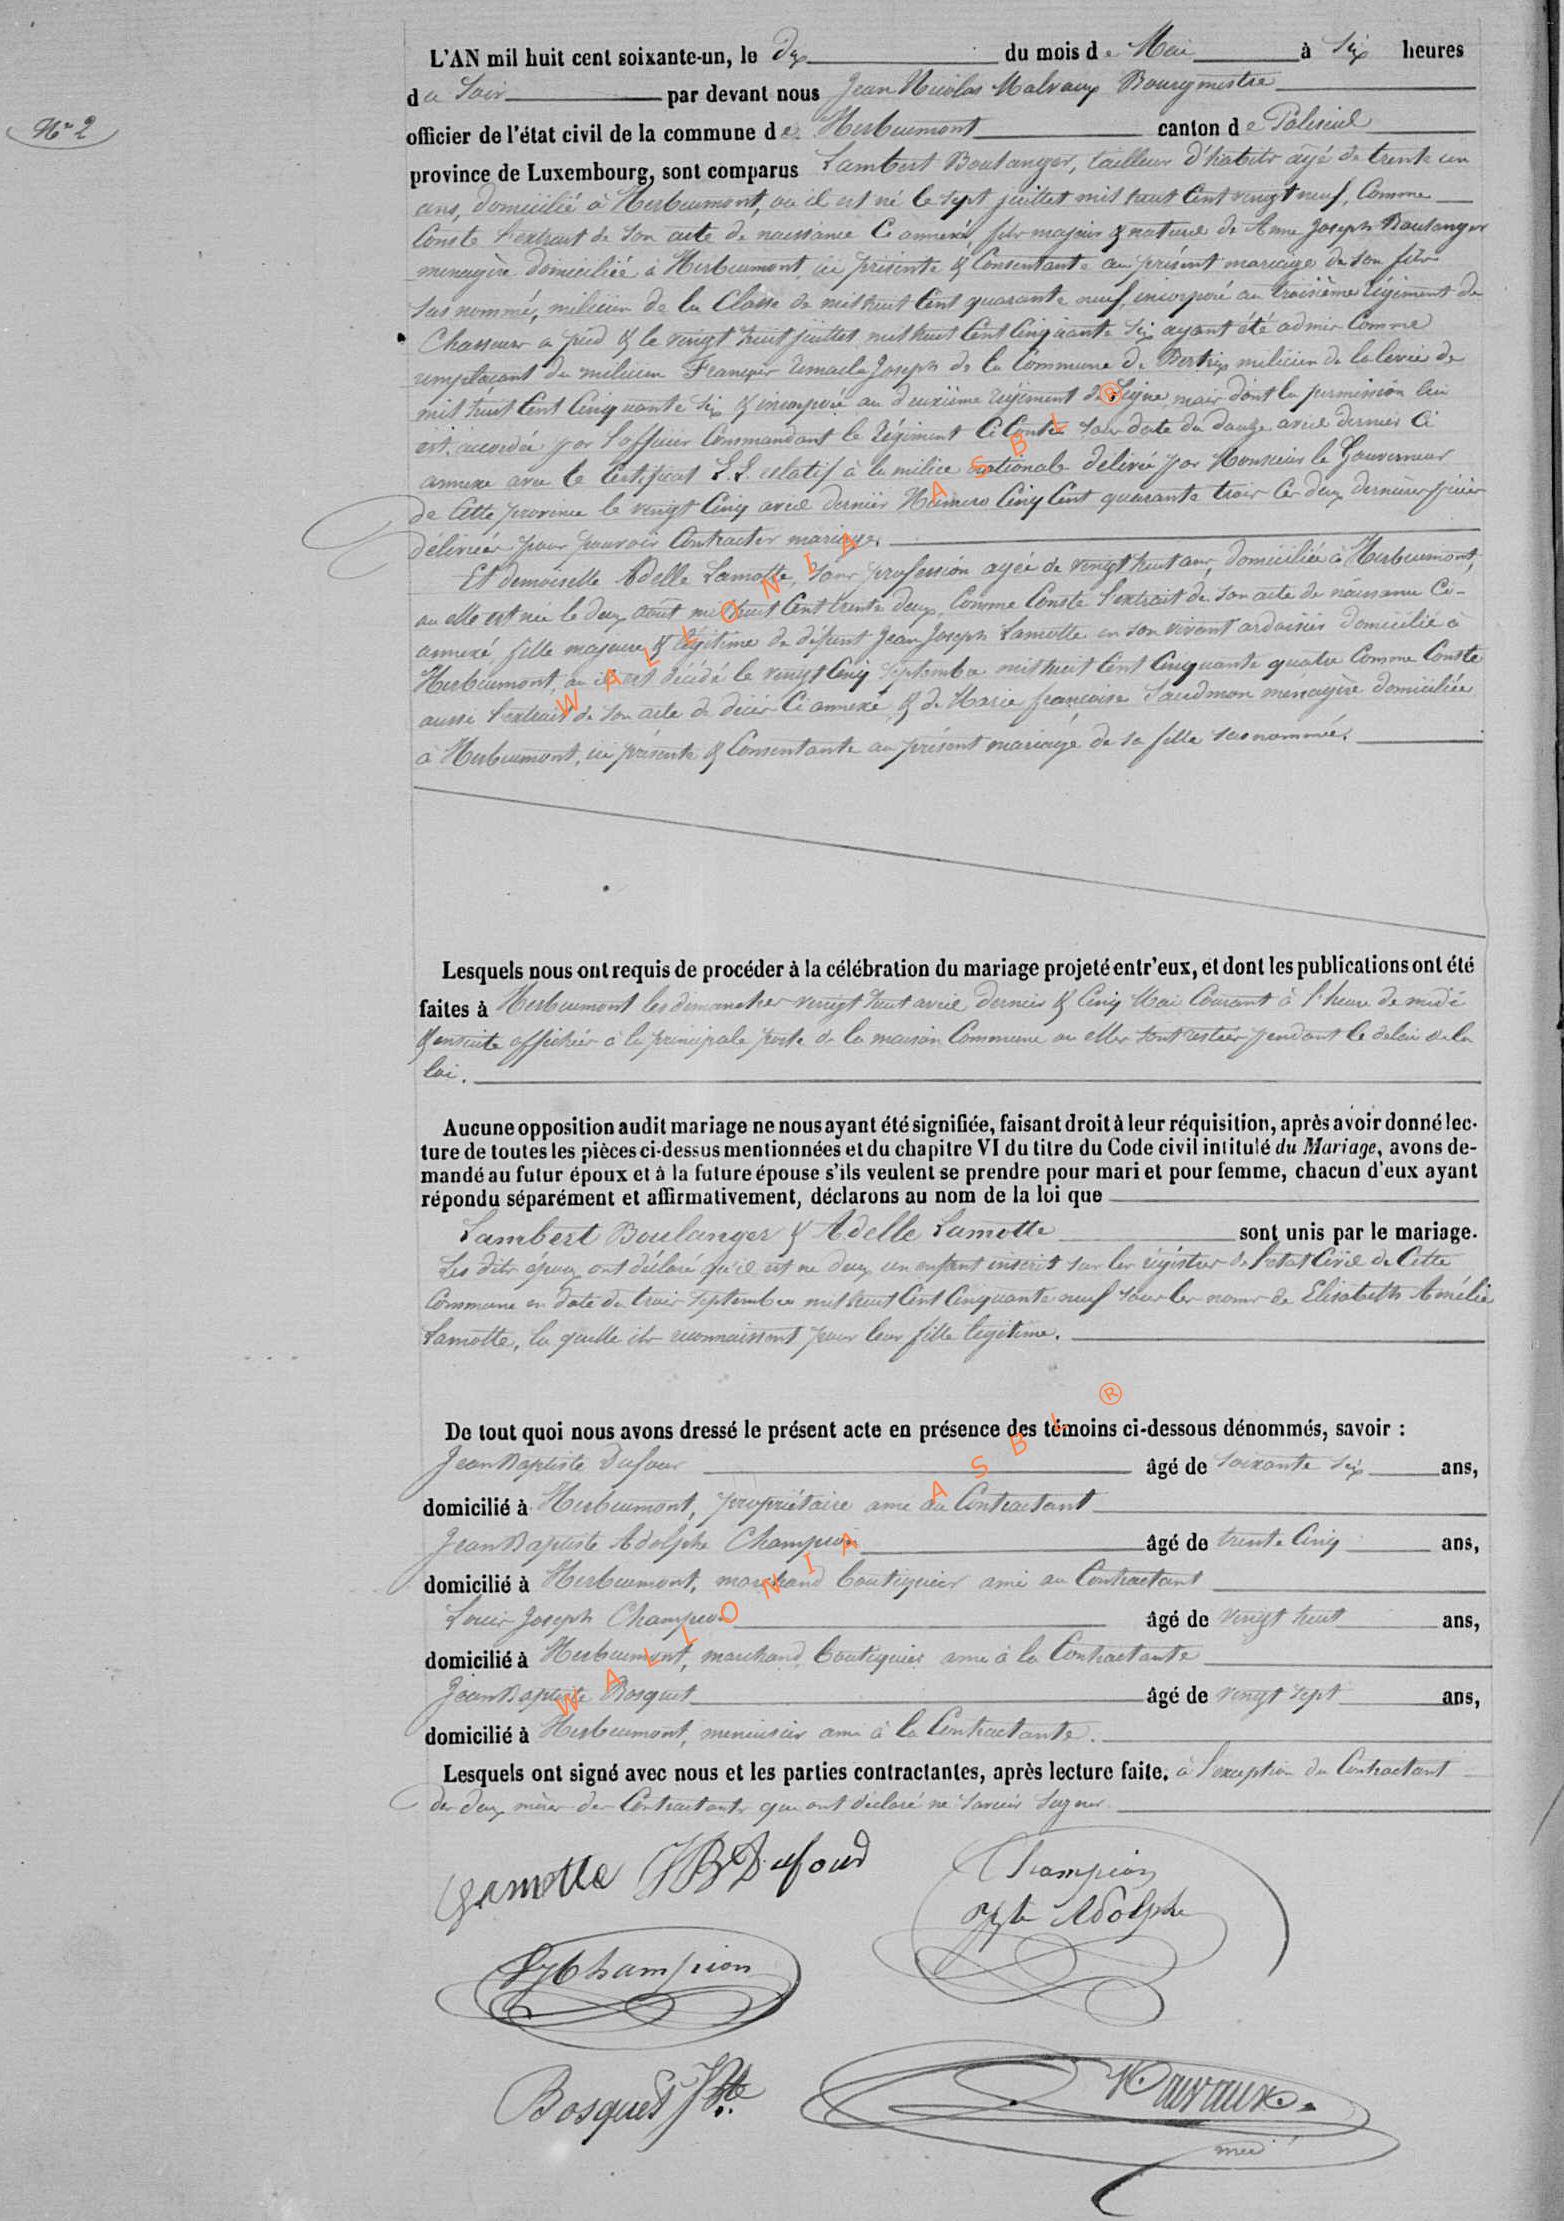 N° 2
L'AN mil huit cent soixante-un, le dix du mois de Mai à six heures
du soir par devant nous Jean Nicolas Malvaux Bourgmestre
officier de l'état civil de la commune de Herbeumont canton de Paliseul
province de Luxembourg, sont comparus Lambert Boulanger, tailleur d'habits âgé de trente un
ans, domicilié à Herbeumont, où il est né le sept juillet mil huit Cent vingt neuf, Comme
Conste l'extrait de son acte de naissance Ci annexé, fils majeur & naturel de Anne Joseph Boulanger
menagère domiciliée à Herbeumont, ici présente & Consentante au présent mariage de son fils
sus nommé, milicien de la Classe de mil huit Cent quarante neuf, incorporé au troisième régiment de
Chasseurs a pied & le vingt huit juillet mil huit Cent Cinquante six ayant été admis Comme
remplaçant du milicien François Remacle Joseph de la Commune de Bertrix milicien de la levée de
mil huit Cent Cinquante six & incorporé au deuxième régiment de Ligne, mais dont la permission lui
est accordée par l'officier Commandant le régiment Ci Contre sous date du douze avril dernier Ci
annexe avec le Certificat L.L. relatif à la milice nationale delivré par Monsieur le Gouverneur
de Cette province le vingt Cinq avril dernier Numero Cinq Cent quarante trois Ces deux dernières pièces
délivrées pour pouvoir Contracter mariage.
Et demoiselle Adelle Lamotte, sans profession agée de vingt huit ans, domiciliée à Herbeumont,
ou elle est née le deux août mil huit Cent trente deux, Comme Conste l'extrait de son acte de naissance Ci-
annexé, fille majeure & légitime de défunt Jean Joseph Lamotte en son vivant ardoisier domicilié à
Herbeumont, ou il est décédé le vingt Cinq septembre mil huit Cent Cinquante quatre Comme Conste
aussi l'extrait de son acte de décès Ci annexé & de Marie françoise menagère domiciliée
à Herbeumont, ici présente & Consentante au présent mariage de sa fille sus nommée.
Lesquels nous ont requis de procéder à la célébration du mariage projeté entr'eux, et dont les publications ont été
faites à Herbeumont les dimanches vingt huit avril dernier & Cinq Mai Courant à l'heure de midi
& ensuite affichées à la principale porte de la maison Commune ou elles sont restées pendant le delai de la
loi.
Aucune opposition audit mariage ne nous ayant été signifiée, faisant droit à leur réquisition, après avoir donné lec-
ture de toutes les pièces ci-dessus mentionnées et du chapitre VI du titre du Code civil intitulé du Mariage, avons de-
mandé au futur époux et à la future épouse s'ils veulent se prendre pour mari et pour femme, chacun d'eux ayant
répondu séparément et affirmativement, déclarons au nom de la loi que
Lambert Boulanger & Adelle Lamotte sont unis par le mariage.
Les dits époux ont déclaré qu'il est ne deux un enfant inscrit sur les régistres de l'etat Civil de Cette
Commune en date du trois septembre mil huit Cent Cinquante neuf sous les noms de Elisabeth Amélie
Lamotte, la quelle ils reconnaissent pour leur fille legitime.
De tout quoi nous avons dressé le présent acte en présence des témoins ci-dessous dénommés, savoir :
Jean Baptiste Dufour âgé de soixante six ans,
domicilié à Herbeumont, propriétaire ami au Contractant
Jean Baptiste Adolphe Champion âgé de trente Cinq ans,
domicilié à Herbeumont, marchand boutiquier ami au Contractant
Louis Joseph Champion âgé de vingt huit ans,
domicilié à Herbeumont, marchand boutiquier ami à la Contractante
Jean Baptiste Bosquet âgé de vingt sept ans,
domicilié à Herbeumont, menuisier ami à la Contractante.
Lesquels ont signé avec nous et les parties contractantes, après lecture faite, à l'exception du Contractant
des deux mères des Contractants qui ont déclaré ne savoir signer.
Lamotte JB Dufour
Champion
Bte Adolphe
LJ Champion
Bosquet J Bte
Malvaux
WALLONIA ASBL ®
WALLONIA ASBL ®